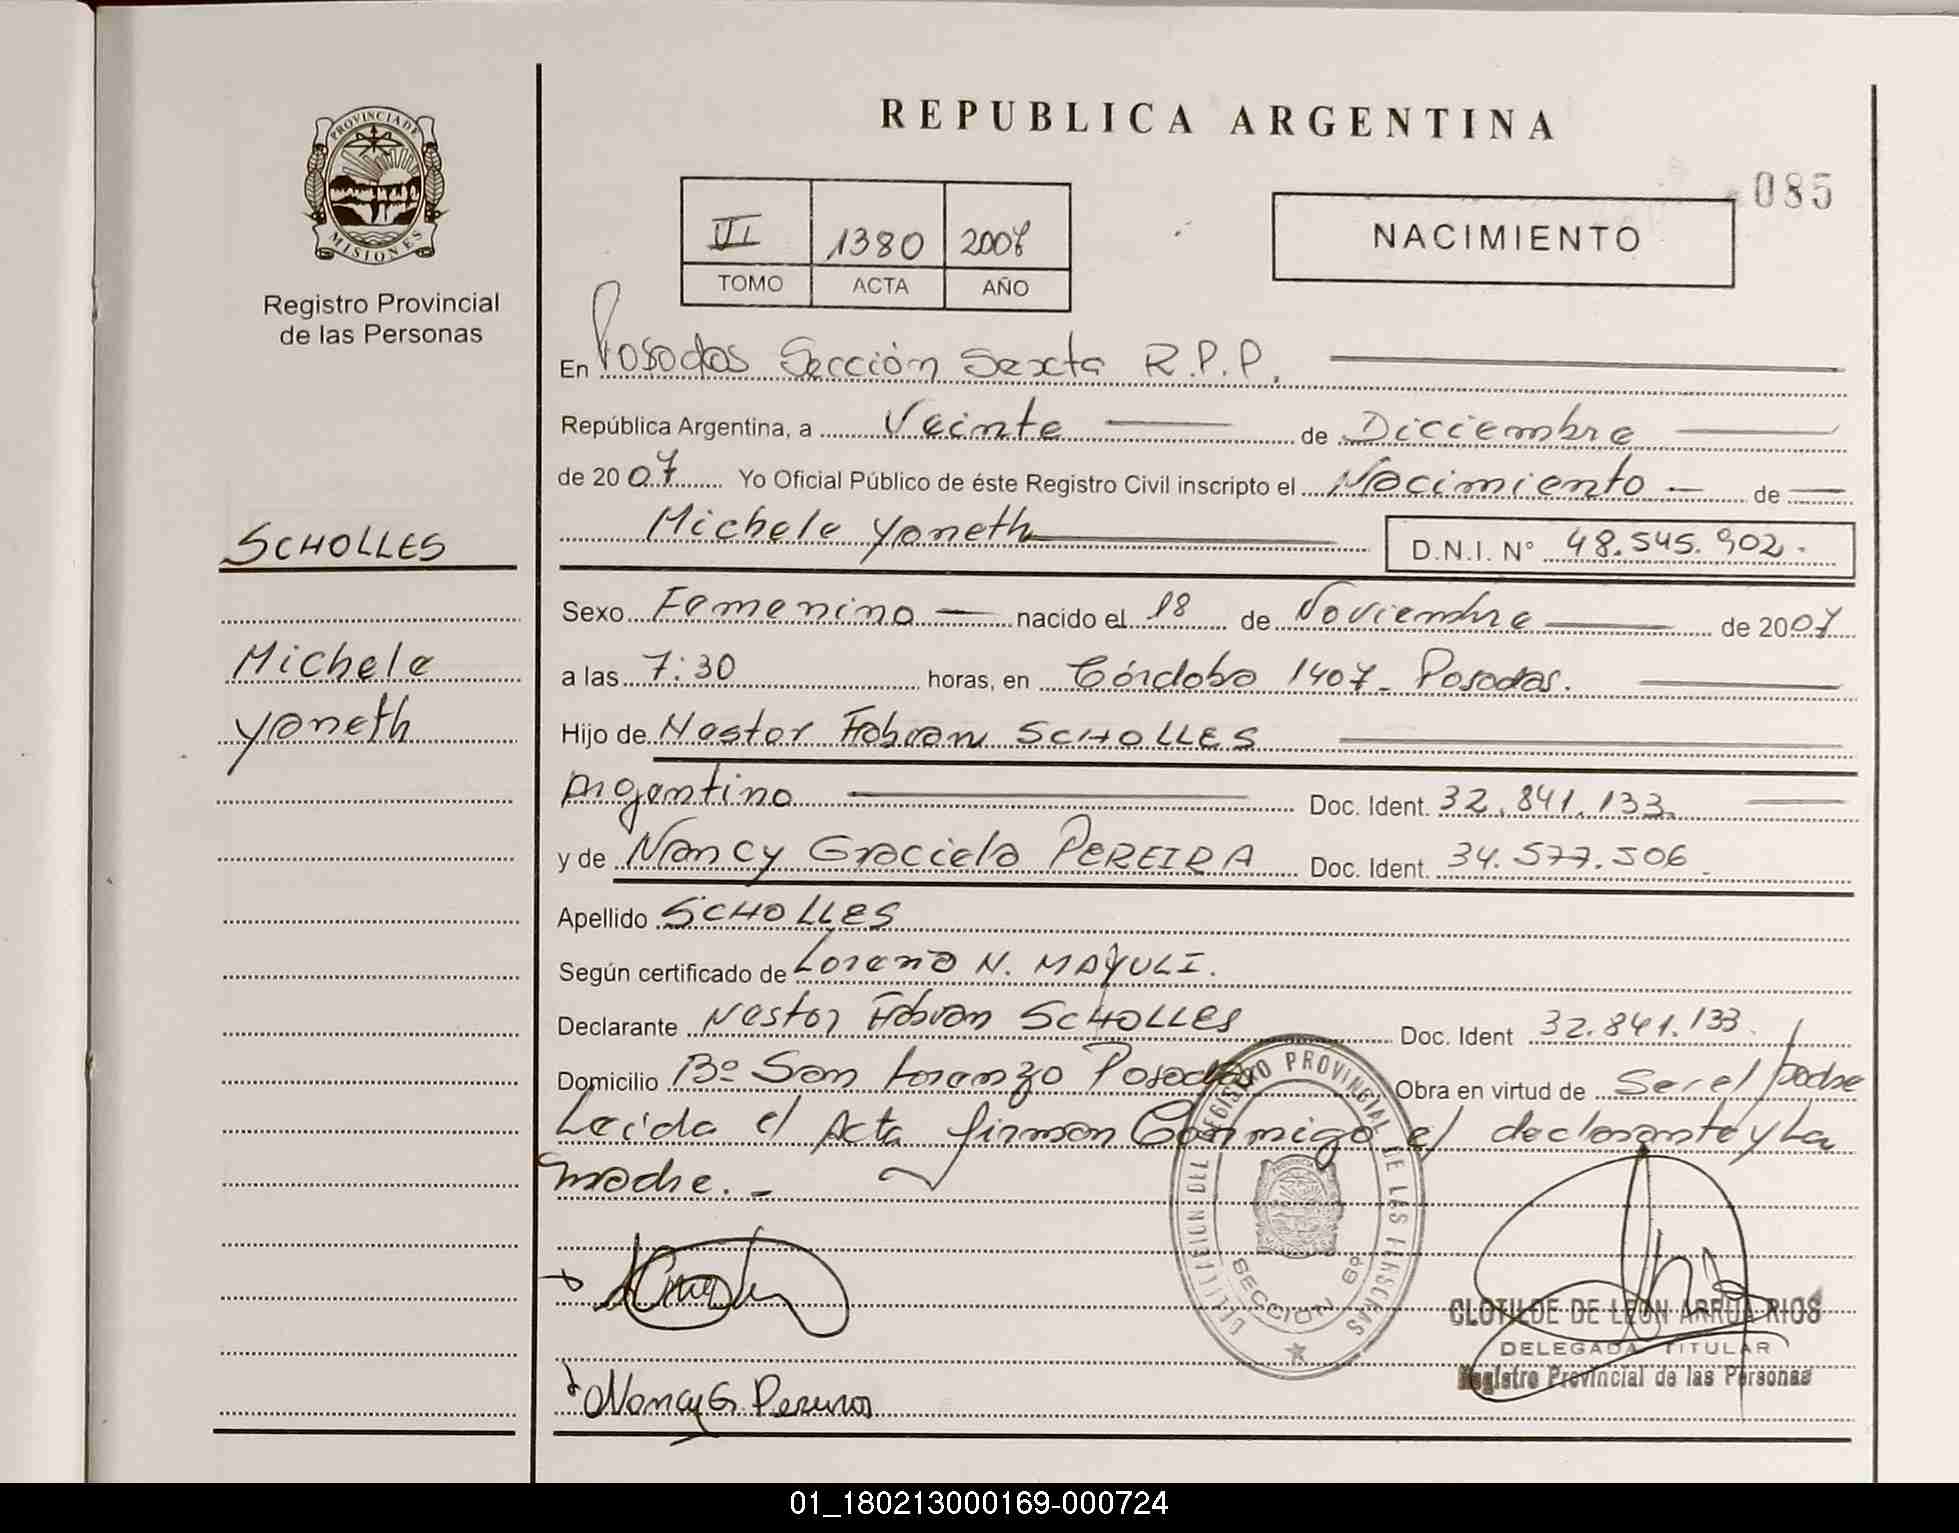 REPUBLICA ARGENTINA
085
PROVINCIA DE
MISIONES
Registro Provincial
de las Personas
VI 1380 2007
TOMO ACTA AÑO
NACIMIENTO
En Posadas Sección Sexta R.P.P.
República Argentina, a Veinte de Diciembre
de 2007 Yo Oficial Público de éste Registro Civil inscripto el Nacimiento de
Michele Yaneth D.N.I. N° 48.545.902.
SCHOLLES
Michele
Yaneth
Sexo Femenino nacido el 18 de Noviembre de 2007
a las 7:30 horas, en Córdoba 1407 - Posadas.
Hijo de Nestor Fabian SCHOLLES
Argentino Doc. Ident. 32.841.133.
y de Nancy Graciela PEREIRA Doc. Ident. 34.577.506
Apellido SCHOLLES
Según certificado de Lorena N. MAYULI.
Declarante Nestor Fabian SCHOLLES Doc. Ident 32.841.133.
Domicilio Bº San Lorenzo Posadas Obra en virtud de Ser el padre
Leida el Acta firman Conmigo el declarante y La
madre. -
DELEGACION DEL REGISTRO PROVINCIAL DE LAS PERSONAS
SECCION 6º
CLOTILDE DE LEON ARRUA RIOS
DELEGADA TITULAR
Registro Provincial de las Personas
Nancy G. Pereira
01_180213000169-000724